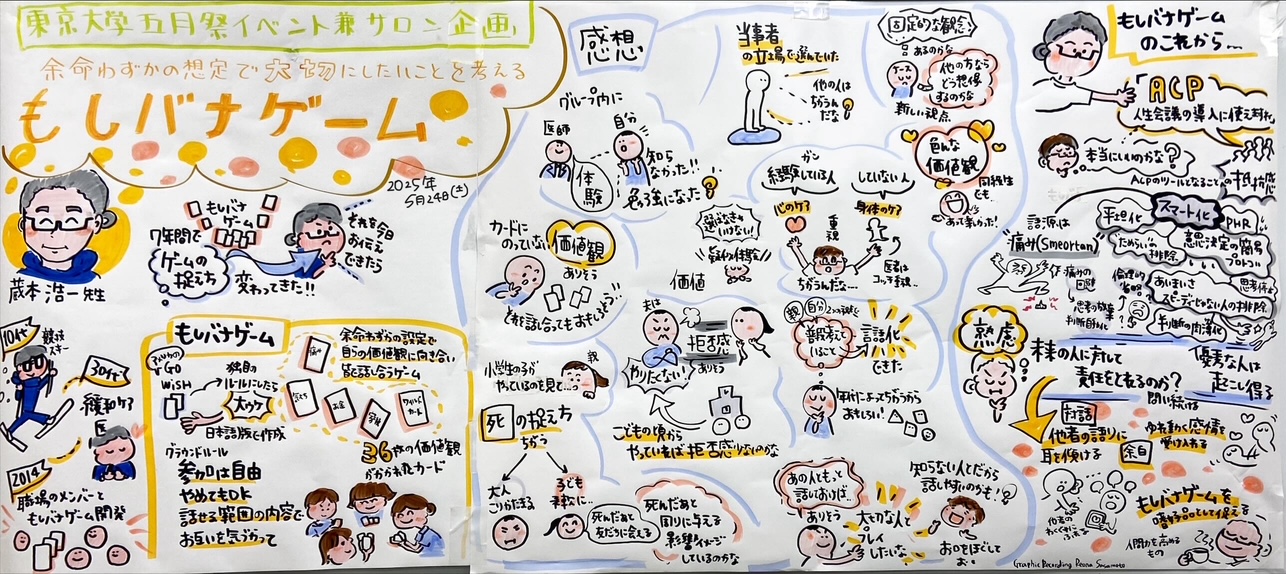 東京大学五月祭イベント兼サロン企画
余命わずかの想定で大切にしたいことを考える
もしバナゲーム
2025年
5月24日(土)
蔵本浩一先生
もしバナ
ゲーム
7年間で
ゲームの
捉え方
変わってきた!!
それを今日
お伝え
できたら
10代
競技
スキー
30代
緩和ケア
医
2014
職場のメンバーと
もしバナゲーム開発
もしバナゲーム
GO
WISH
独自の
ルールにしたら
大ウケ
日本語版で作成
余命わずかの設定で
自らの価値観に向き合い
皆と話し合うゲーム
お金
ワイルド
カード
36枚の価値観
がかかれたカード
グラウンドルール
参加は自由
やめてもOK
話せる範囲の内容で
お互いを気づかって
感想
グループ内に
医師
自分
体験
知ら
なかった!!
当事者
の立場で選んでいた
他の人は
ちがうん
だな
固定的な観念
あるのかな
ナース
他の方なら
どう想像
するのかな
新しい視点
色んな
価値観
同級生
とも
あって楽しかった!
カードに
のっていない
価値観
ありそう
それを話し合ってもおもしろそう
選ばなきゃ
いけない!
疑似体験!!
価値
ガン
経験している人
していない人
心のケア
身体のケア
重視
ちがうんだな…
医者は
コッチ重視…
小学生の子が
やっているのを見て…
我
死の捉え方
ちがう
大人
こりかたまる
子ども
柔軟に…
死んだあと
友だちに会える
夫は
やりたくない!
拒否感
ありそう
こどもの頃から
やっていれば拒否感少ないのかな
死んだあと
周りに与える
影響イメージ
しているのかな
親
自分
普段考えて
いること
言語化
できた
おもしろい!
あの人とも
話しておけば…
ありそう
大切な人と
プレイ
したいな
知らない人とだから
話しやすいのかも!
お口をほぐして
お
もしバナゲーム
のこれから…
ACP
人生会議の導入に使える
本当にいいのかな?
ACPのツールとなることへ
抵抗感
語源は
"痛み(Smeortan)
痛みの
回避
手早化
スマート化
PHR
ためらいの
排除
意思決定の簡易
プロトコル
倫理的
省略
あいまいさ
スピーディじゃない人の排除
思考停止
思考の放棄
判断自動化
熟慮
未来の人に対して
責任をとれるのか?
問い続ける
優秀な人は
起こし得る
対話
他者の語りに
耳を傾ける
余白
ゆれ動く感情を
受け入れる
もしバナゲームを
嗜好品として捉える
人間力を高める
もの
Graphic Recording Reona Sucamoto